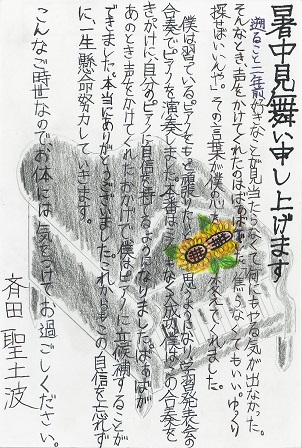 暑中見舞い申し上げます
遡ること一年前好きなことが見当たらなくて何にもヤる気が出なかった。
そんなとき声をかけてくれたのはばあばでした。「焦らなくてもいい。ゆっくり
探せばいいんや。」その言葉が僕の心を
僕は習っているピアノをもっと頑張りたいと思うようになり、学習発表会の
合奏でピアノを演奏しました。本番は
きっかけに自分のピアノに自信を持てるようになりました。ばあばが
あのとき声をかけてくれたおかげで僕はピアノに立候補することが
できました。本当にありがとうございました。これからもこの自信を忘れず
に、一生懸命努力していきます。
こんなご時世なのでお体には気をつけてお過ごしください。
斉田聖土波